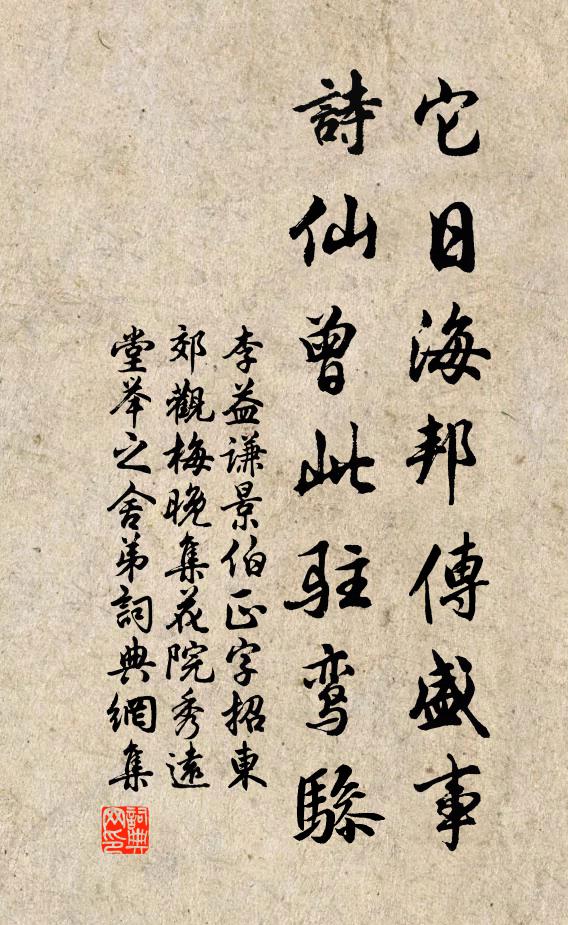 它日海邦傳盛事
詩仙曾此駐鸾驂
李益谦景伯正字招東
郊觀梅晚集花院秀遠
堂举之舍弟詞典網集
詞典网印